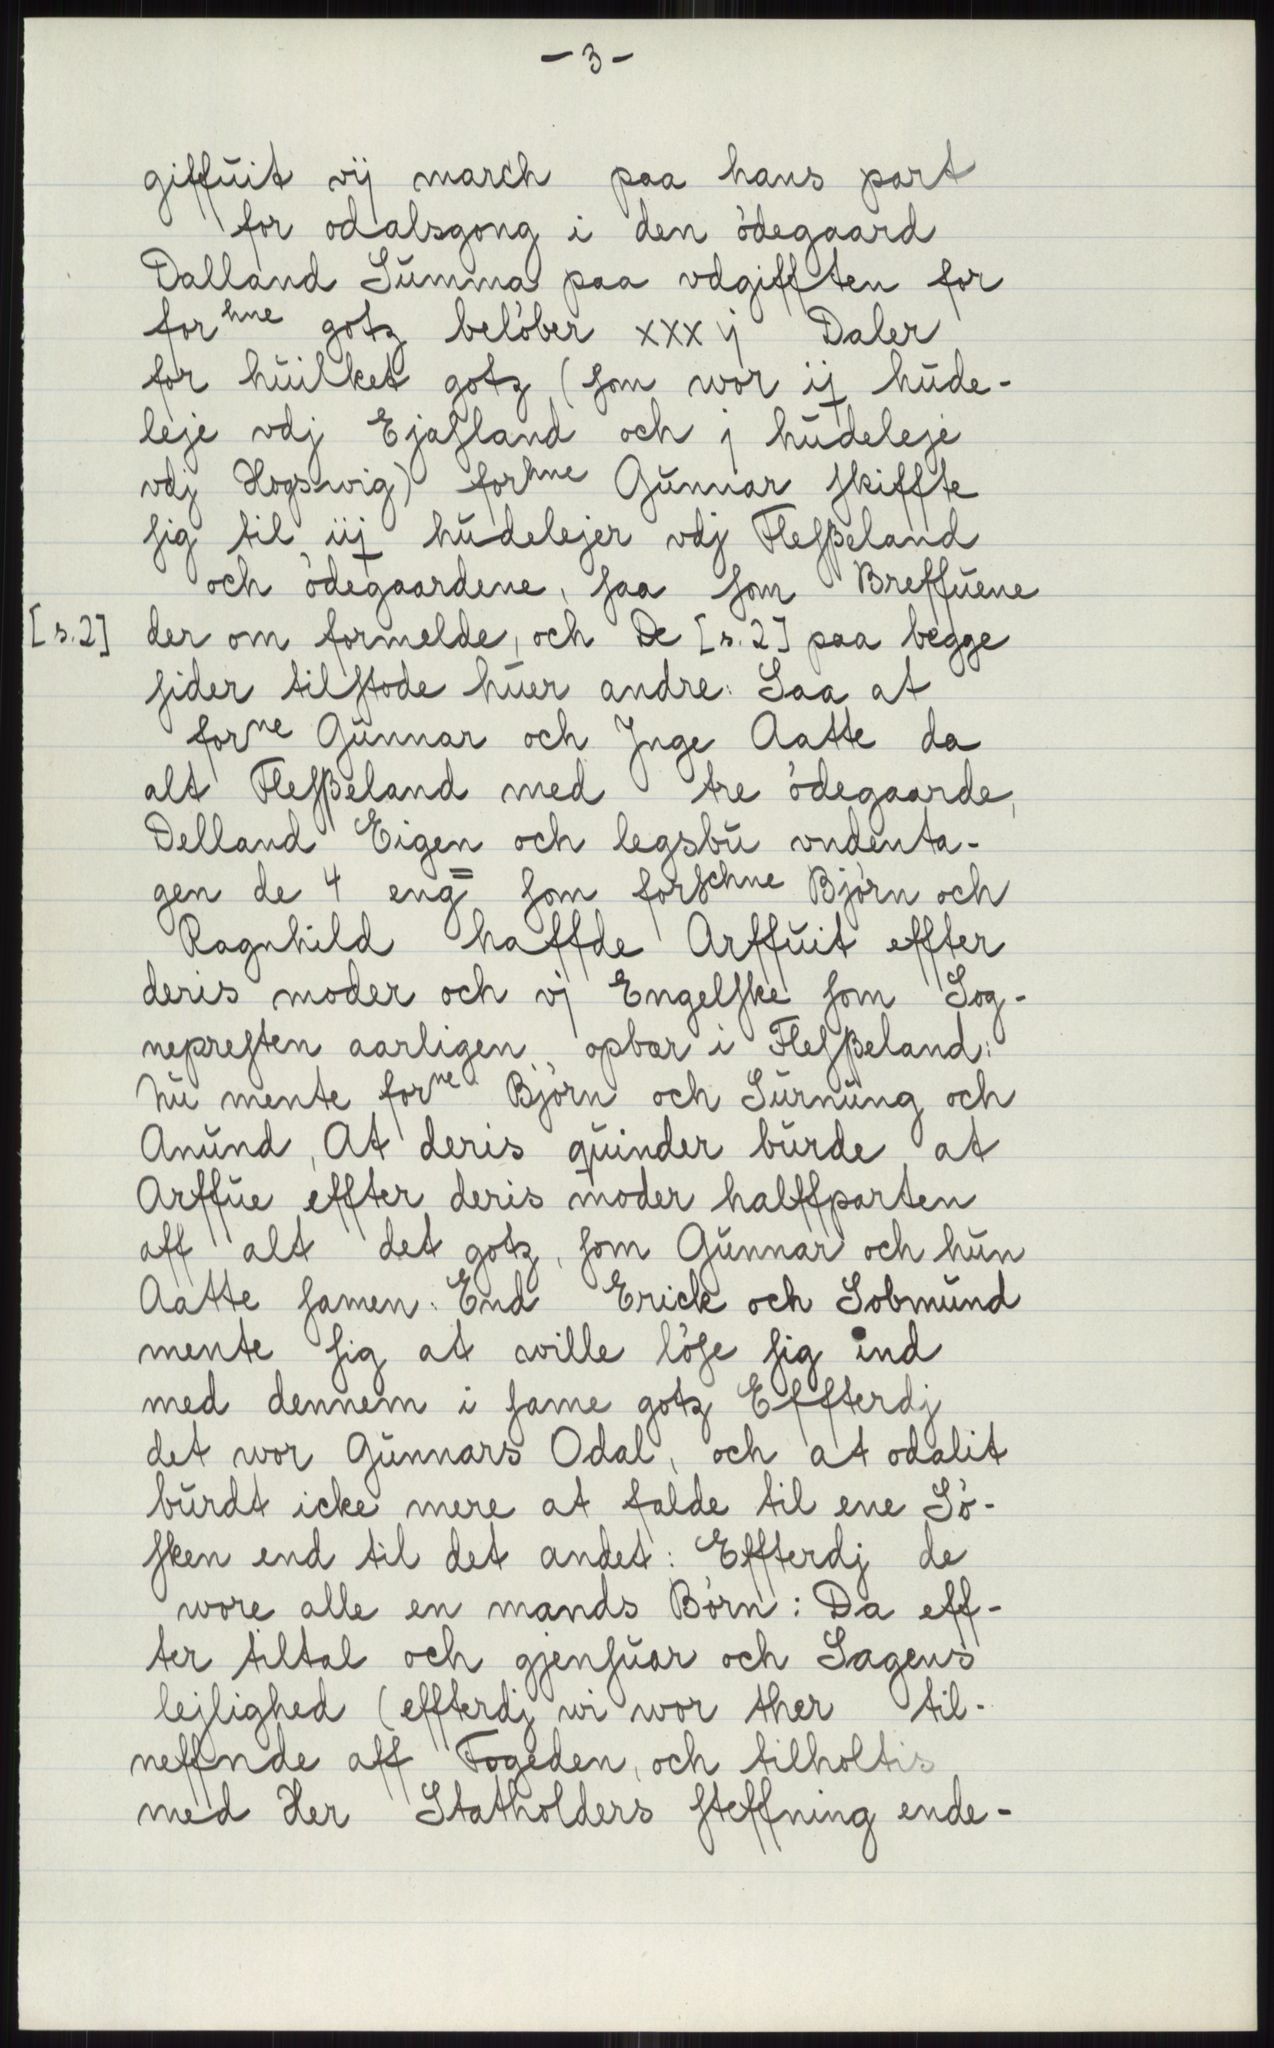 - 3 -
giffuit vij march paa hans part
for odalsgong i den ödegaard
Dalland Summa paa vdgifften for
forhne gotz belöber xxx j Daler
for huilket gotz (som wor ij hude-
leje vdj Ejasland och j hudeleje
vdj Hogswig) forhne Gunnar skiffte
sig til iij hudelejer vdj Flesßeland
och ödegaardene, saa som Breffuene
[s.2] der om formelde, och De [s.2] paa begge
sider tilstode huer andre: Saa at
forne Gunnar och Jnge Aatte da
alt Flesßeland med tre ödegaarde,
Delland Eigen och legsbu vndenta-
gen de 4 eng= som forschne Björn och
Ragnhild haffde Arffuit effter
deris moder och vj Engelske som Sog-
nepresten aarligen opbær i Flesßeland:
Nu mente forne Björn och Surnung och
Anund, At deris quinder burde at
Arffue effter deris moder halffparten
aff alt det gotz, som Gunnar och hun
Aatte samen: End Erick och Sobmund
mente sig at wille löse sig ind
med dennem i same gotz Effterdj
det wor Gunnars Odal, och at odalit
burdt icke mere at falde til ene Sö-
sken end til det andet: Effterdj de
wore alle en mands Börn: Da eff-
ter tiltal och gjensuar och Sagens
lejlighed (effterdj wi wor ther til-
neffnde aff Fogeden, och tilholtis
med Her Statholders steffning ende-